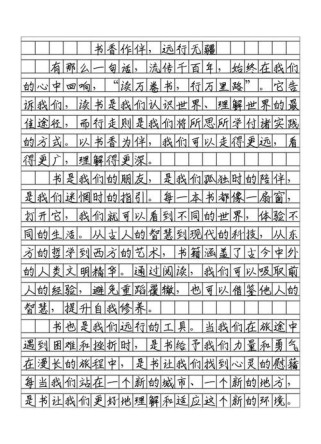 书香作伴，远行无疆
有那么一句话，流传千百年，始终在我们
的心中回响，“读万卷书，行万里路”。它告
诉我们，读书是我们认识世界、理解世界的最
佳途径，而行走则是我们将所思所学付诸实践
的方式。以书香为伴，我们可以走得更远，看
得更广，理解得更深。
书是我们的朋友，是我们孤独时的陪伴，
是我们迷惘时的指引。每一本书都像一扇窗，
打开它，我们就可以看到不同的世界，体验不
同的生活。从古人的智慧到现代的科技，从东
方的哲学到西方的艺术，书籍涵盖了古今中外
的人类文明精华。通过阅读，我们可以吸取前
人的经验，避免重蹈覆辙，也可以借鉴他人的
智慧，提升自我修养。
书也是我们远行的工具。当我们在旅途中
遇到困难和挫折时，是书给予我们力量和勇气
在漫长的旅程中，是书让我们找到心灵的慰藉
每当我们站在一个新的城市、一个新的地方，
是书让我们更好地理解和适应这个新的环境。